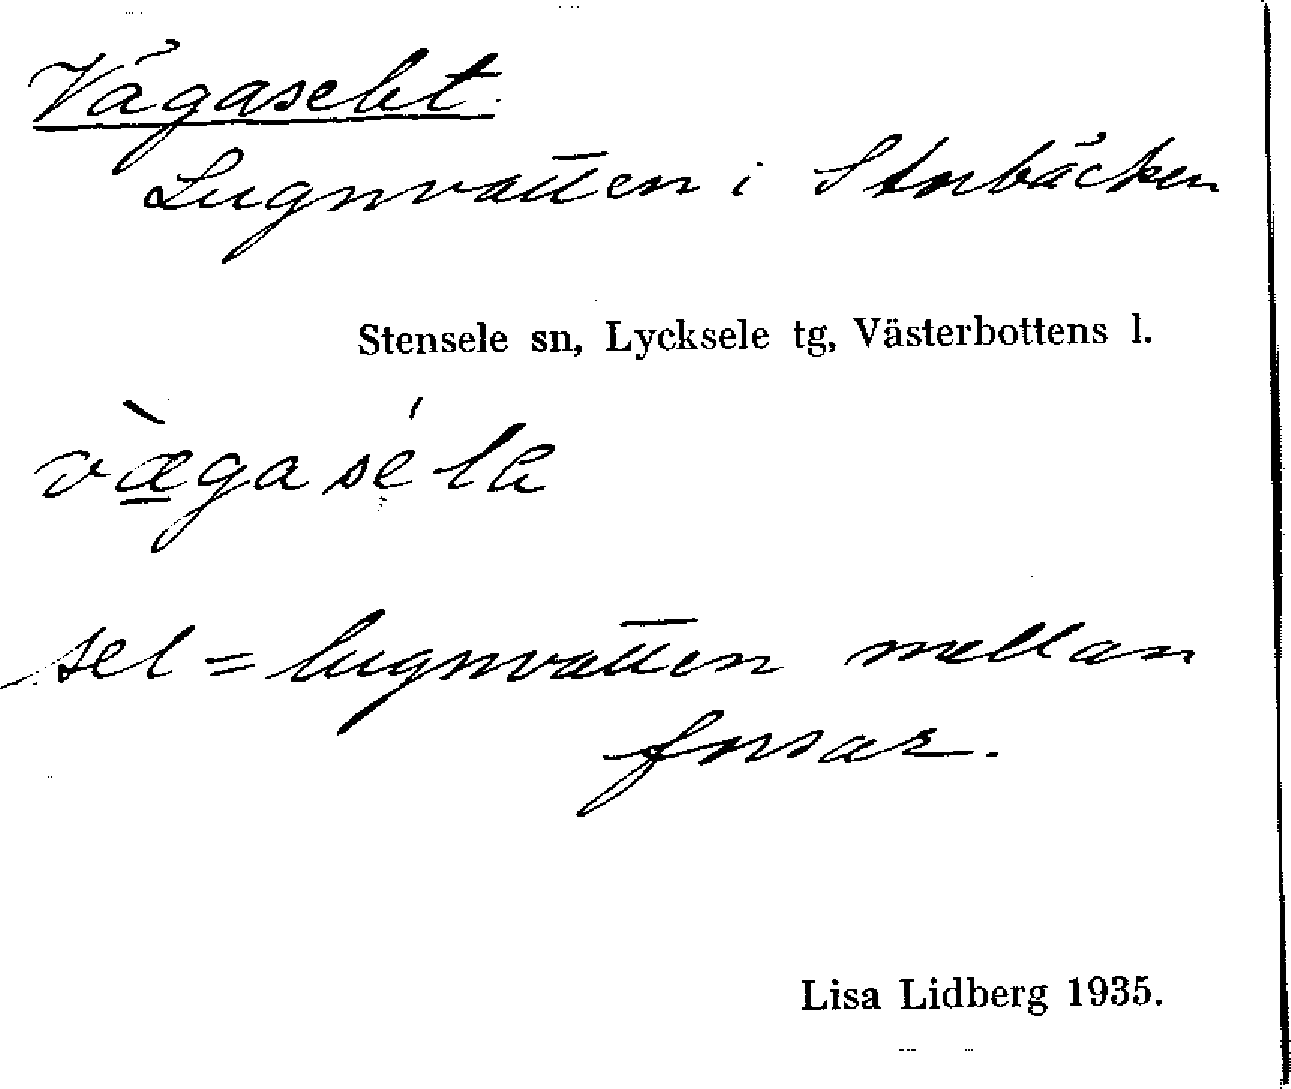 Vägaselet.
Lugnvatten i Storbäcken
Stensele sn, Lycksele tg, Västerbottens l.
sel = lugnvatten mellan
forsar.
Lisa Lidberg 1935.